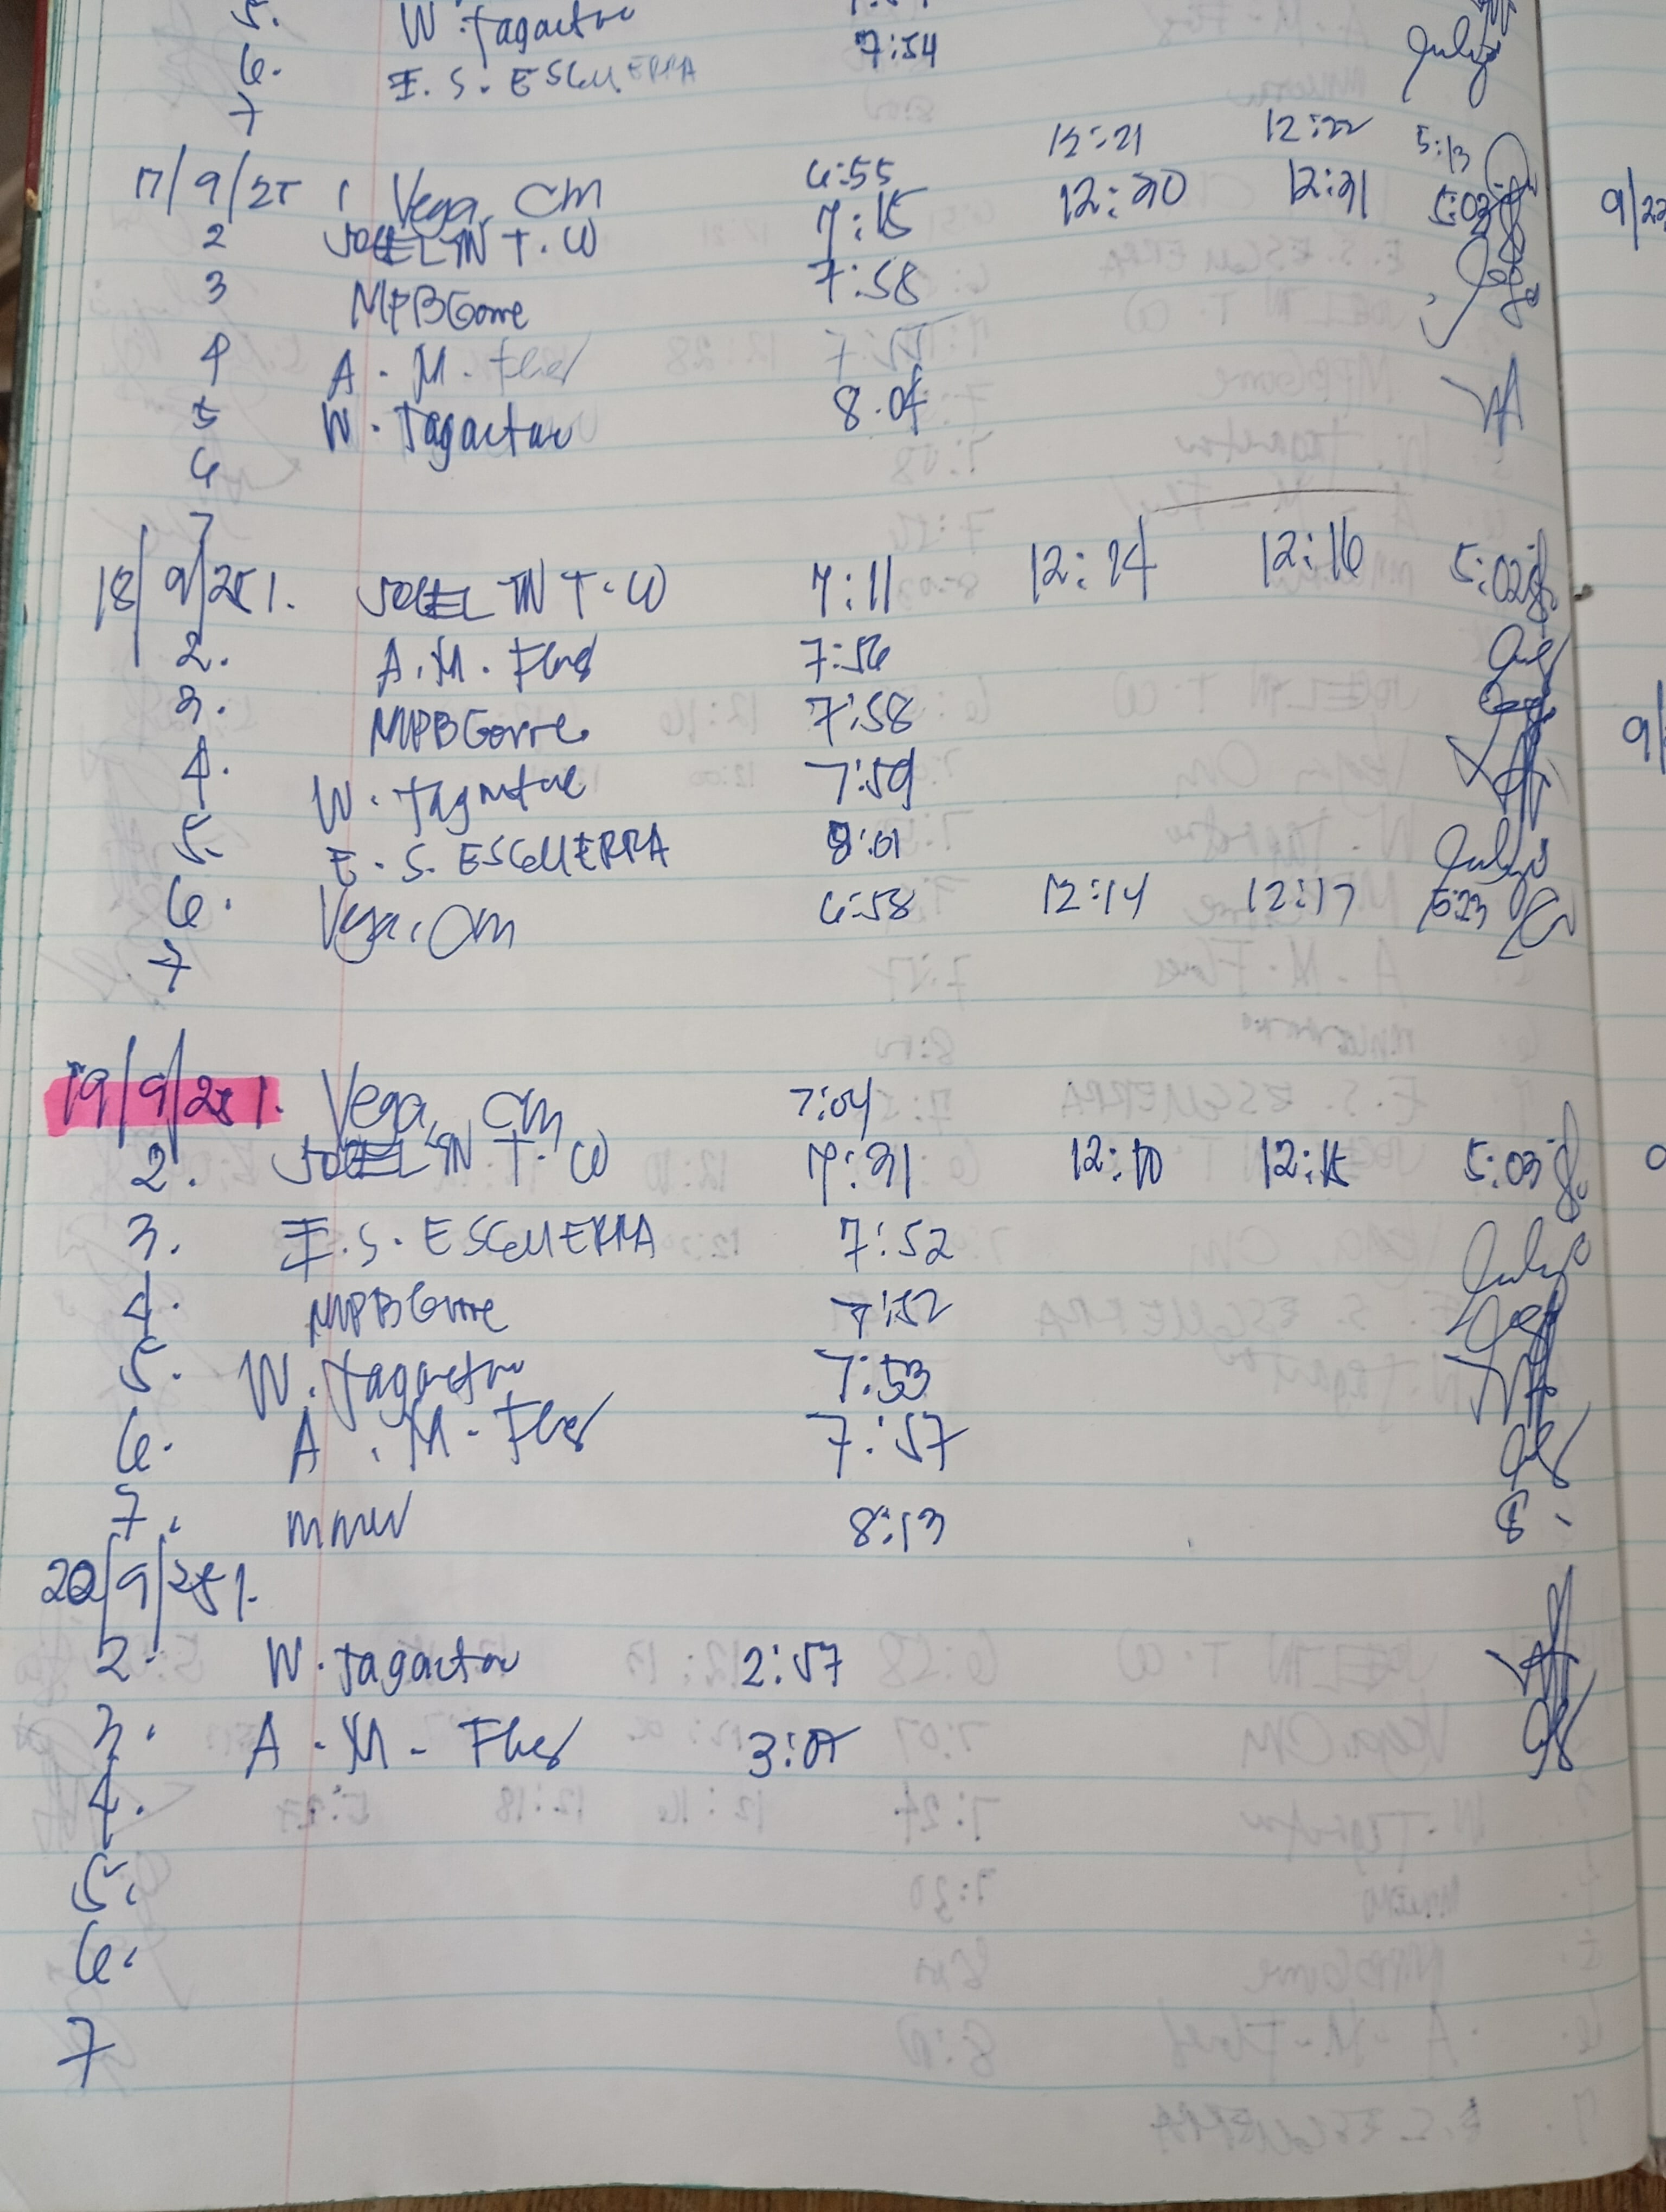 5. W. Tagactac
6. E. S. ESGUERRA 7:54
7
12:21 12:22 5:13
17/9/25 1 Vega, CM 6:55
2 JOCELYN T. W 7:15 12:30 12:31 5:03
3 MPBGorre 7:58
4 A. M. Flores
5 W. Tagactac 8:04
6
7
18/9/25 1. JOCELYN T. W 7:11 12:14 12:16 5:02
2. A. M. Flores 7:56
3. MPBGorre 7:58
4. W. Tagactac 7:59
5. E. S. ESGUERRA 8:01
6. Vega, CM 6:58 12:14 12:17 5:23
7
19/9/25 1. Vega, CM 7:04
2. JOCELYN T. W 7:31 12:10 12:15 5:03
3. E. S. ESGUERRA 7:52
4. MPBGorre 7:52
5. W. Tagactac 7:53
6. A. M. Flores 7:57
7. 8:13
20/9/25 1.
2. W. Tagactac 2:57
3. A. M. Flores
4.
5.
6.
7